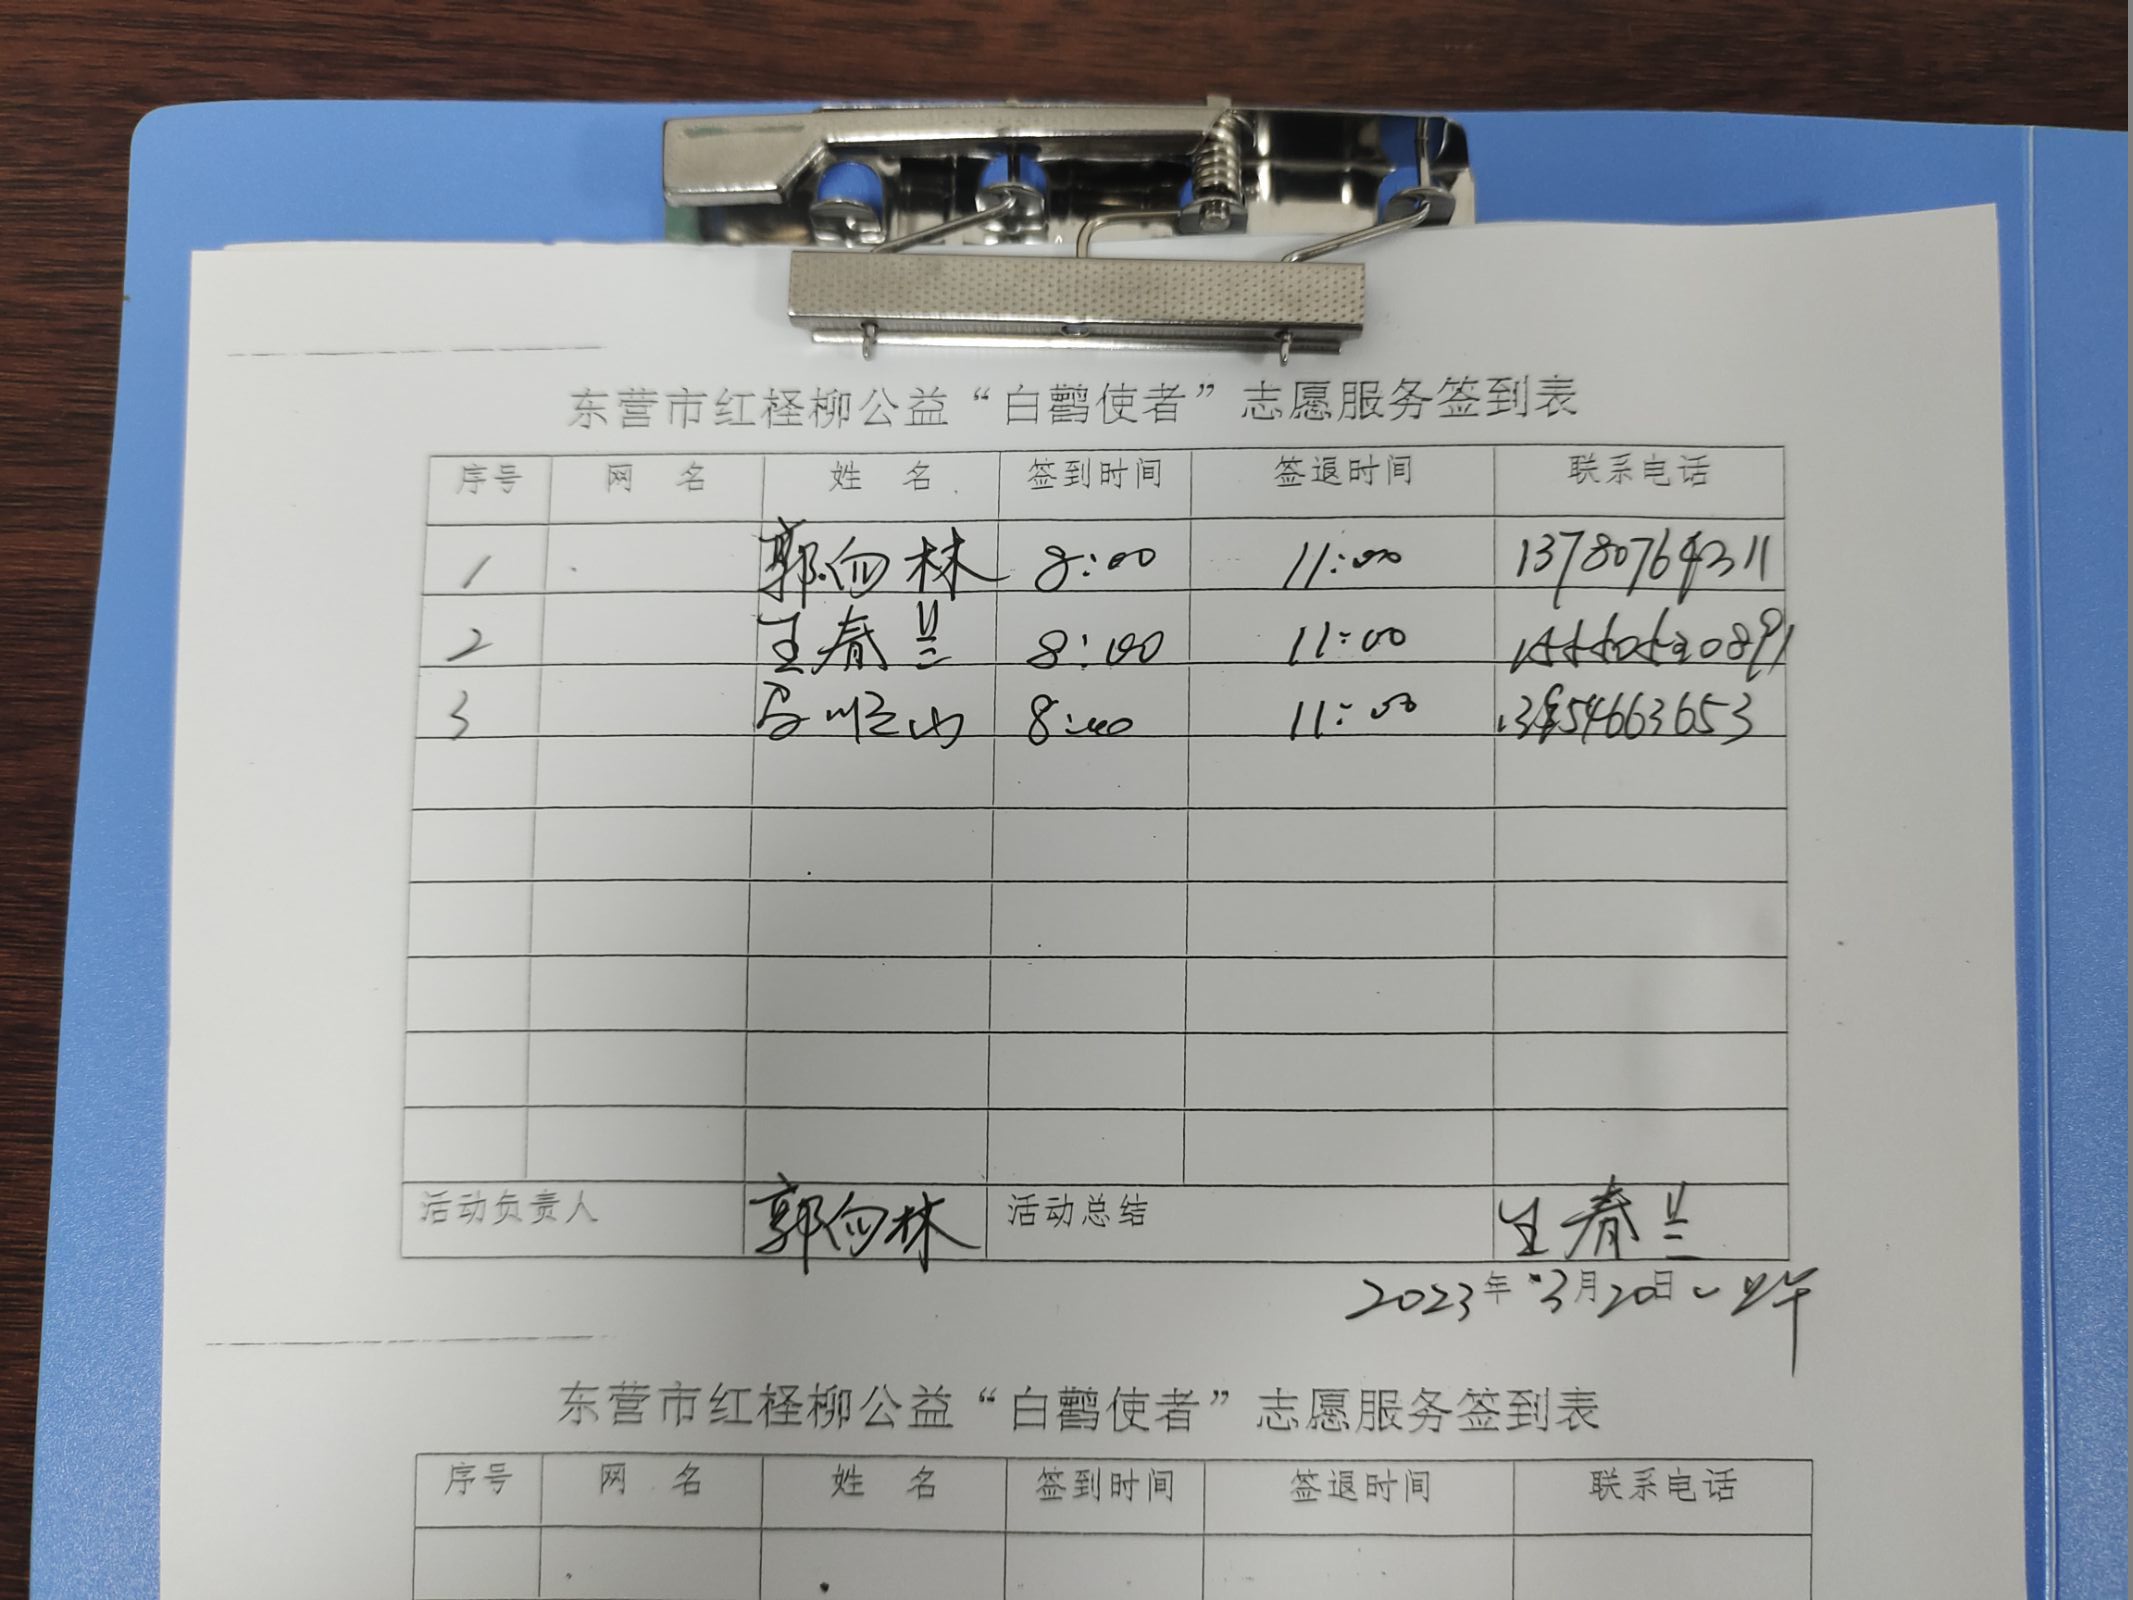 东营市红柽柳公益“白鹳使者”志愿服务签到表
序号 网 名 姓 名 签到时间 签退时间 联系电话
1 郭向林 8:00 11:00 13780764311
2 王春兰 8:00 11:00
3 8:00 11:00
活动负责人 郭向林 活动总结 王春兰
2023年3月20日
东营市红柽柳公益“白鹳使者”志愿服务签到表
序号 网 名 姓 名 签到时间 签退时间 联系电话